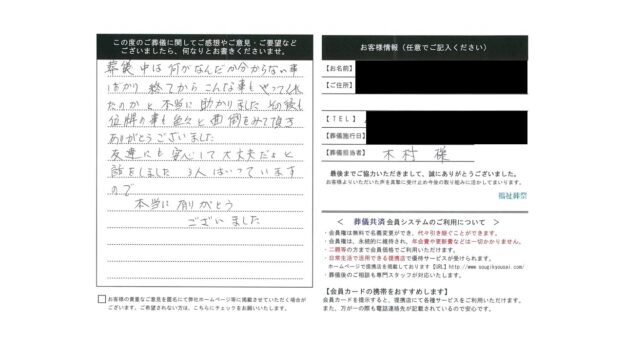 この度のご葬儀に関してご感想やご意見・ご要望など
ございましたら、何なりとお書きくださいませ。
葬儀中は何がなんだか分からない事
ばかり 終てから こんな事も やってくれ
たのかと 本当に 助かりました その後も
位牌の事も色々と面倒をみて頂き
ありがとうございました
友達にも安心して大丈夫だよと
話をしました 3人はいっていますので
本当に有りがとう
ございました
お客様の貴重なご意見を匿名にて弊社ホームページ等に掲載させていただく場合が
ございます。ご希望されない方は、こちらにチェックをお願いいたします。
お客様情報（任意でご記入ください）
【お名前】
【ご住所】
【ＴＥＬ】
【葬儀施行日】
【葬儀担当者】 木村 様
最後までご協力いただきまして、誠にありがとうございました。
お客様よりいただいた声を真摯に受け止め今後の取り組みに活かしてまいります。
福祉葬祭
＜ 葬儀共済会員システムのご利用について ＞
・会員権は無料で名義変更ができ、代々引き継ぐことができます。
・会員権は、永続的に維持され、年会費や更新費などは一切かかりません。
・二親等の方まで会員価格でご利用いただけます。
・日常生活で活用できる提携店で優待サービスが受けられます。
ホームページで提携店を掲載しております【URL】http://www.sougikyousai.com/
・葬儀後のご相談も専門スタッフが対応いたします。
【会員カードの携帯をおすすめします】
会員カードを提示すると、提携店にて各種サービスをご利用いただけます。
また、万が一の際も電話連絡先が記載されているので安心です。